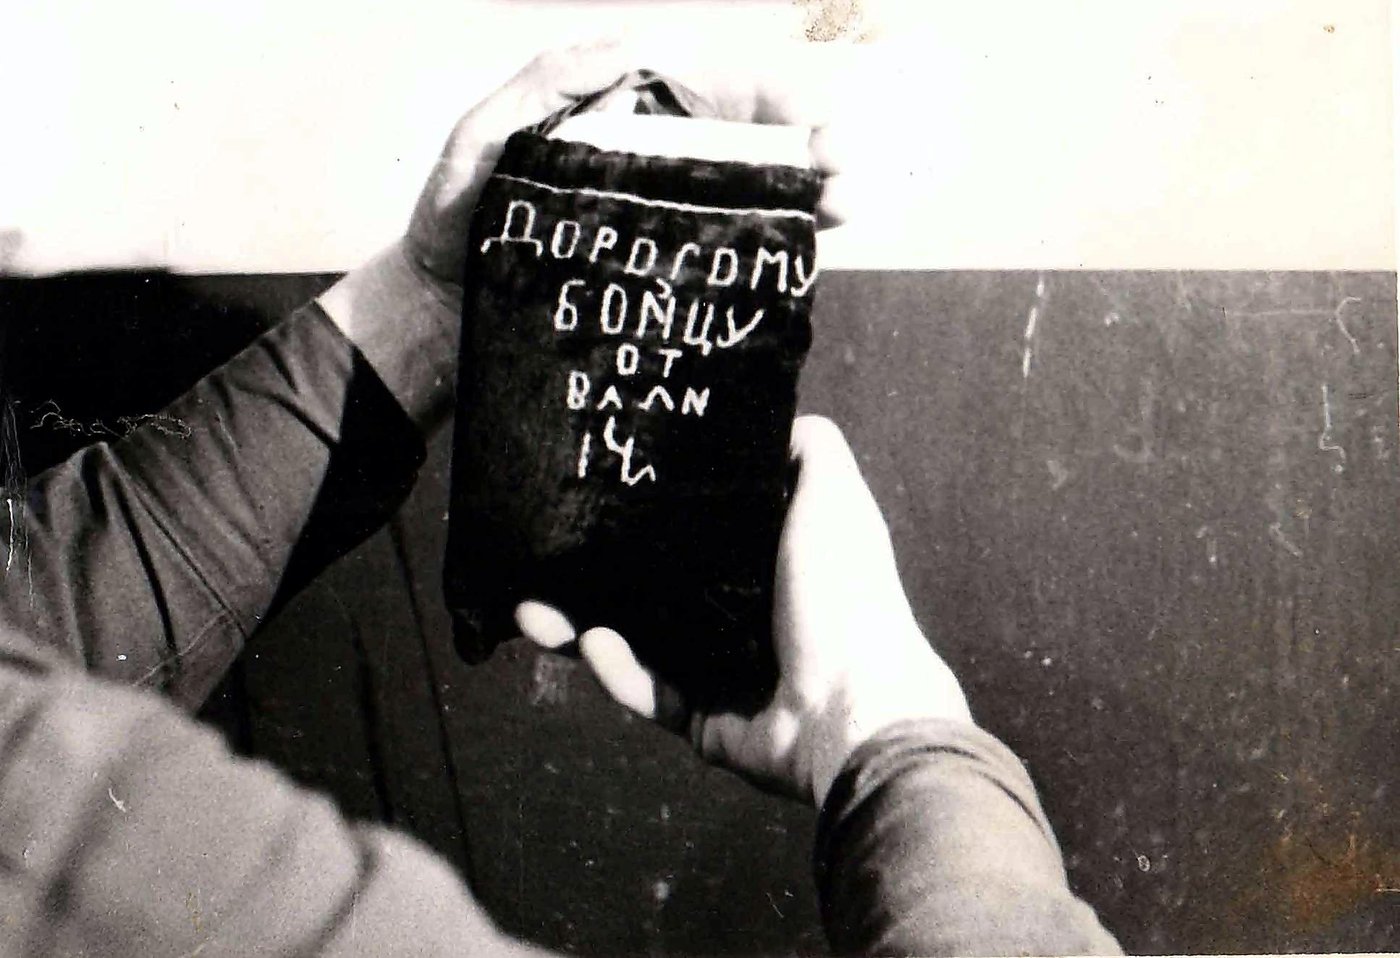 ДОРОГОМУ
БОЙЦУ
ОТ
ВАЛИ
14 л